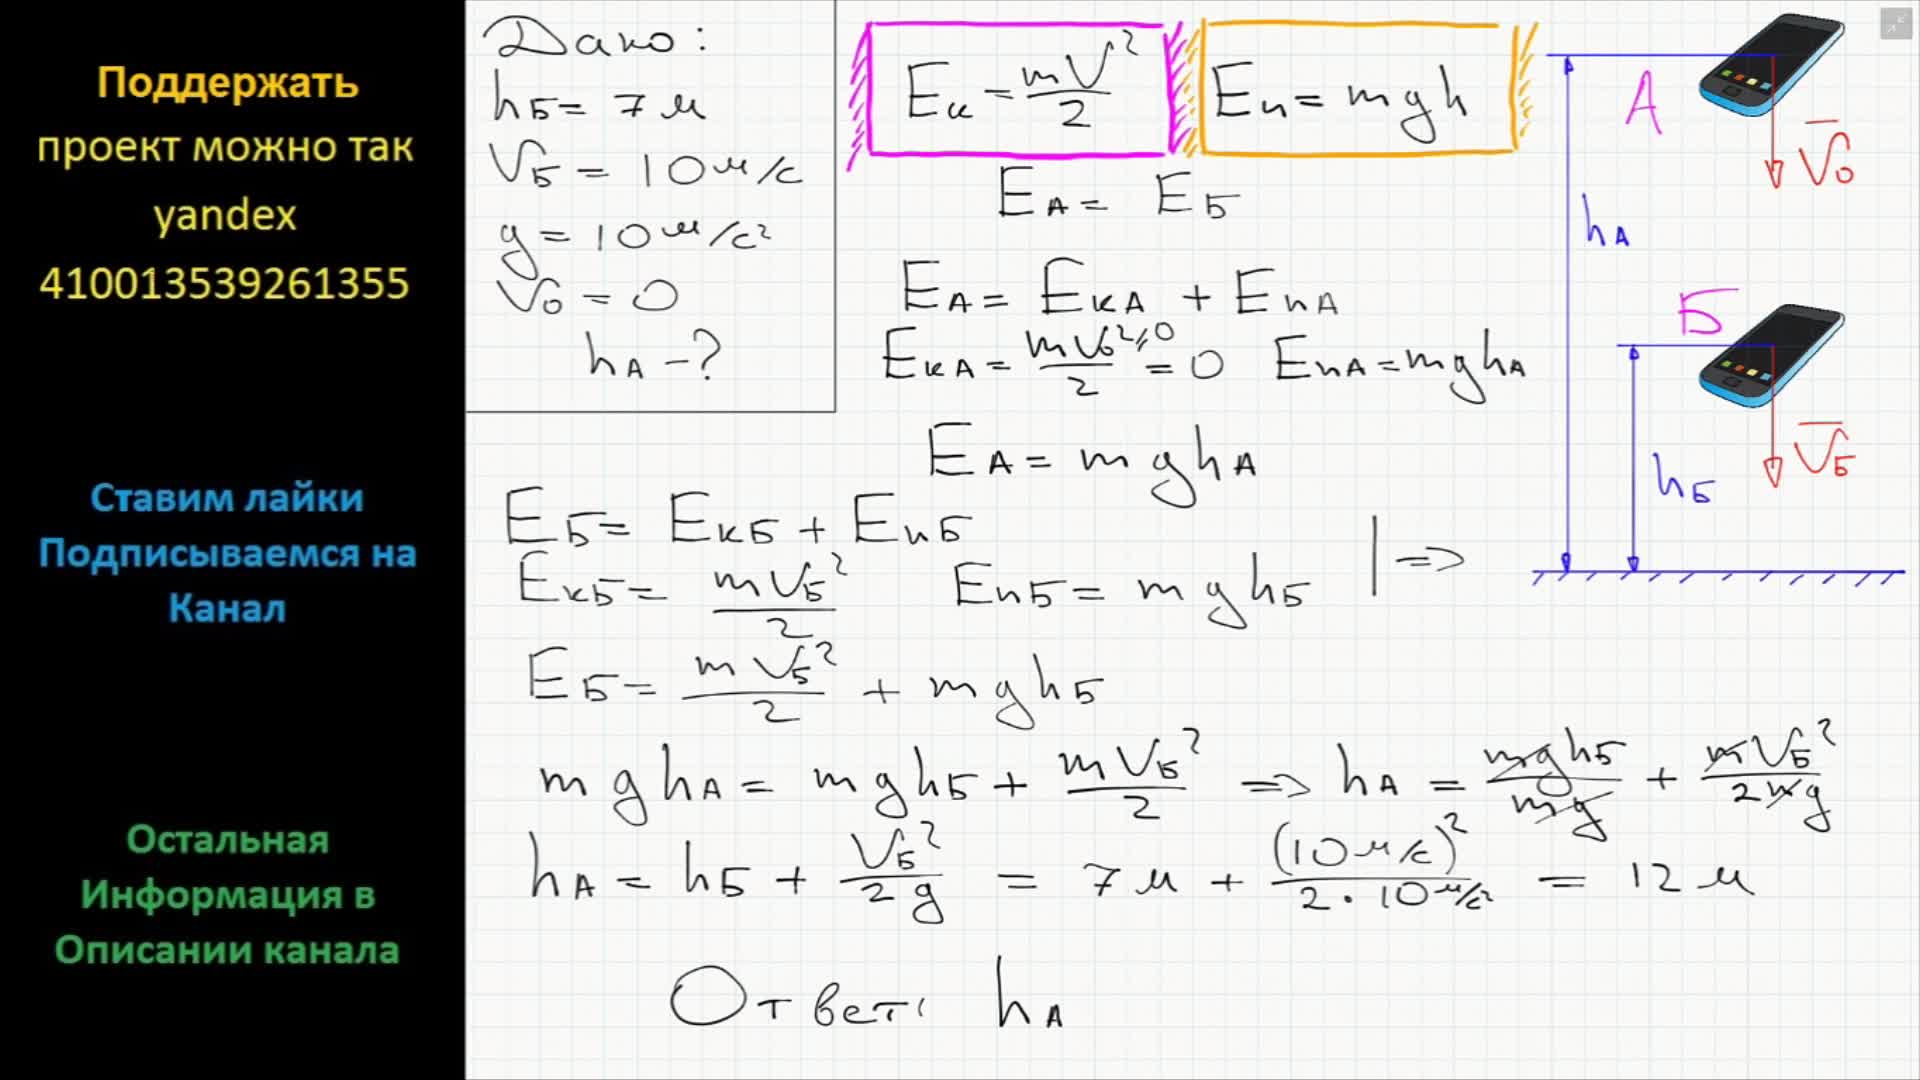 Поддержать
проект можно так
yandex
410013539261355
Ставим лайки
Подписываемся на
Канал
Остальная
Информация в
Описании канала
Дано:
hБ = 7 м
VБ = 10 м/с
g = 10 м/с²
V₀ = 0
hА - ?
Eк = mV²/2
Eп = mgh
EА = EБ
EА = EкА + EпА
EкА = mV₀²/2 = 0 EпА = mghА
EА = mghА
EБ = EкБ + EпБ
EкБ = mVБ²/2 EпБ = mghБ | =>
EБ = mVБ²/2 + mghБ
mghА = mghБ + mVБ²/2 => hА = mghБ/mg + mVБ²/2mg
hА = hБ + VБ²/2g = 7 м + (10 м/с)²/2·10 м/с² = 12 м
Ответ: hА
А
V₀
hА
Б
VБ
hБ